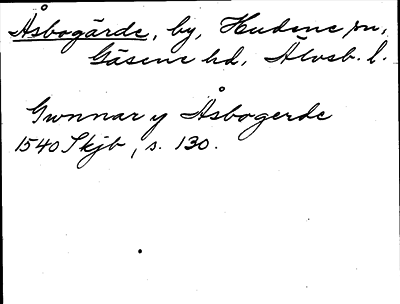 Åsbogärde, by, Hudene sn,
Gäsene hd, Älvsb. l.
Gwnnar y Åsbogerde
1540 Skjb, s. 130.